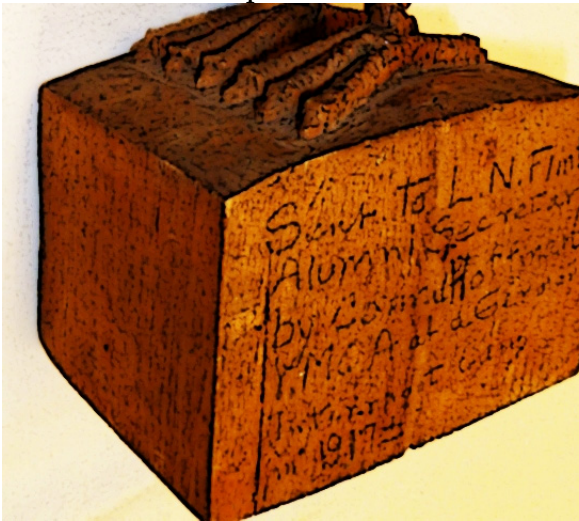 Sent. To L. N. Flint
Alumni Secretary
by Conrad Hoffman
Y.M.C.A at a German
Internment Camp
in 1917